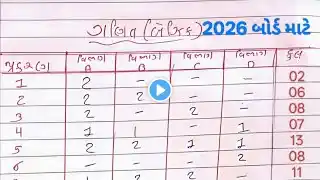 ગણિત (બેઝિક) 2026 બોર્ડ માટે
પ્રકરણ વિભાગ A વિભાગ B વિભાગ C વિભાગ D કુલ
1 2 - - - 02
2 2 2 - 06
3 2 - 2 - 08
4 1 1 - 1 07
5 2 2 1 1 13
6 - - - 2 08
11